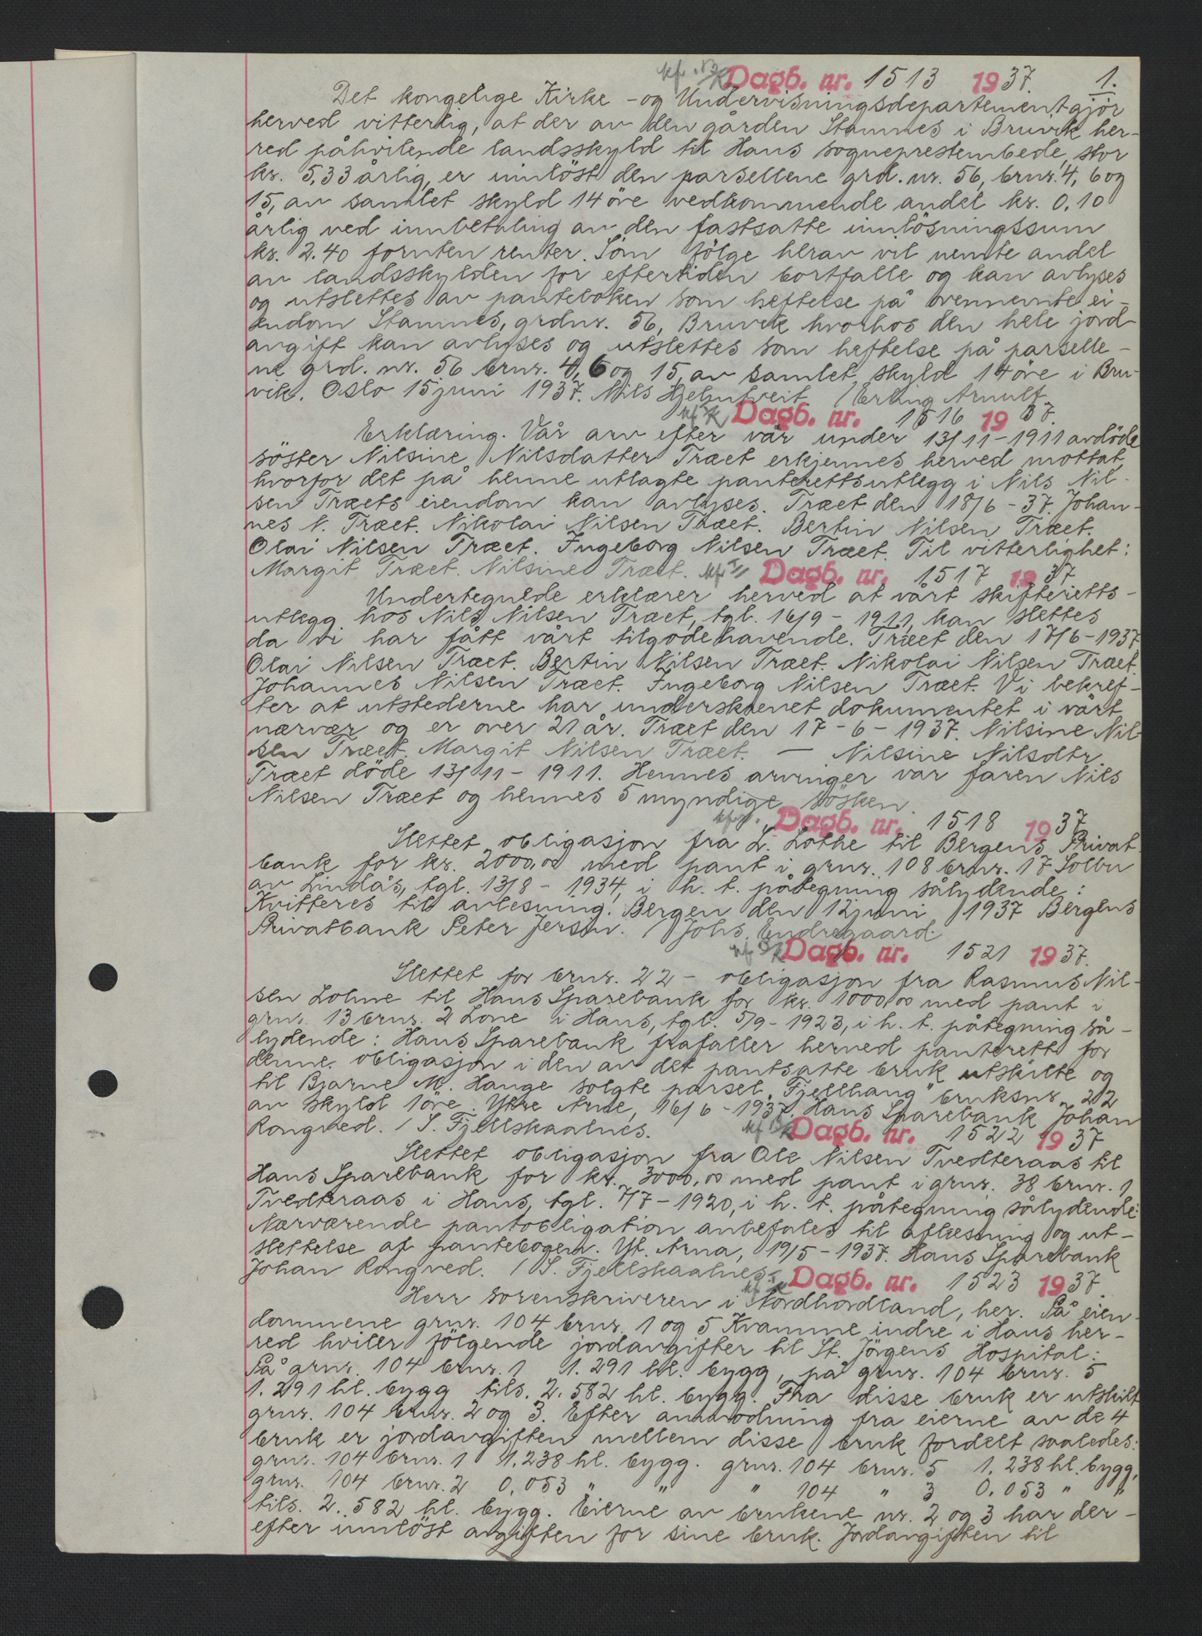 Dagb. nr. 1513 1937. 1.
Det kongelige Kirke- og Undervisningsdepartement gjør
herved vitterlig, at der av den gården Stamnes i Bruvik her-
red påhvilende landsskyld til Haus sogneprestembede, stor
kr. 5,33 årlig, er innlöst den parsellene grd. nr. 56, brnr. 4, 6 og
15, av samlet skyld 14 öre vedkommende andel kr. 0.10
årlig ved innbetaling av den fastsatte innlösningssum
kr. 2.40 foruten renter. Som fölge herav vil nevnte andel
av landsskylden for eftertiden bortfalle og kan avlyses
og utslettes av panteboken som heftelse på ovennevnte ei-
endom Stamnes, grdnr. 56, Bruvik hvorhos den hele jord-
avgift kan avlyses og utslettes som heftelse på parselle-
ne grd. nr. 56 brnr. 4, 6 og 15, av samlet skyld 14 öre i Bru-
vik. Oslo 15 juni 1937. Nils Hjelmtveit / Erling Arnulf
Dagb. nr. 1516 1937.
Erklæring. Vår arv efter vår under 13/11-1911 avdöde
söster Nilsine Nilsdatter Træet erkjennes herved mottat
hvorfor det på henne utlagte panterettsutlegg i Nils Nil-
sen Træets eiendom kan avlyses. Træet den 18/6-37. Johan-
nes N. Træet. Nikolai Nilsen Træet. Bertin Nilsen Træet.
Olai Nilsen Træet. Ingeborg Nilsen Træet. Til vitterlighet:
Margit Træet. Nilsine Træet. Dagb. nr. 1517 1937
Undertegnede erklærer herved at vårt skifteretts-
utlegg hos Nils Nilsen Træet, tgl. 16/9-1911, kan slettes
da vi har fått vårt tilgodehavende. Træet den 17/6-1937
Olai Nilsen Træet. Bertin Nilsen Træet. Nikolai Nilsen Træet.
Johannes Nilsen Træet. Ingeborg Nilsen Træet. Vi bekref-
ter at utstederne har underskrevet dokumentet i vårt
nærvær og er over 21 år. Træet den 17-6-1937. Nilsine Nil-
sen Træet. Margit Nilsen Træet. — Nilsine Nilsdtr.
Træet döde 13/11-1911. Hennes arvinger var faren Nils
Nilsen Træet og hennes 5 myndige sösken.
Dagb. nr. 1518 1937
Slettet obligasjon fra L. Lothe til Bergens Privat-
bank for kr. 2000,00 med pant i grnr. 108 brnr. 17 Solbu
av Lindås, tgl. 13/8-1934, i h. t. påtegning sålydende:
Kvitteres til avlesning. Bergen den 12 juni 1937 Bergens
Privatbank Peter Jersin. / Johs. Endregaard.
Dagb. nr. 1521 1937.
Slettet for brnr. 22 - obligasjon fra Rasmus Nil-
sen Lohne til Haus Sparebank for kr. 1000,00 med pant i
grnr. 13 brnr. 2 Lone i Haus, tgl. 5/9-1923, i h. t. påtegning så-
lydende: Haus Sparebank frafaller herved panterett for
denne obligasjon i den av det pantsatte bruk utskilte og
til Bjarne M. Hauge solgte parsel, "Fjellhaug" bruksnr. 22
av skyld 1 öre. Ytre Arne, 16/6-1937. Haus Sparebank Johan
Rongved. / S. Fjellskaalnes. Dagb. nr. 1522 1937
Slettet obligasjon fra Ole Nilsen Tvedteraas til
Haus Sparebank for kr. 3000,00 med pant i grnr. 38 brnr. 1
Tvedteraas i Haus, tgl. 7/7-1920, i h. t. påtegning sålydende:
Nærværende pantobligation anbefales til aflæsning og ut-
slettelse af pantebogen. Yt. Arna, 19/5-1937. Haus Sparebank
Johan Rongved. / S. Fjellskaalnes. Dagb. nr. 1523 1937.
Herr sorenskriveren i Nordhordland, her. På eien-
dommene grnr. 104 brnr. 1 og 5 Kvamme indre i Haus her-
red hviler fölgende jordavgifter til St. Jörgens Hospital:
På grnr. 104 brnr. 1 1.291 hl. bygg, på grnr. 104 brnr. 5
1.291 hl. bygg tils. 2.582 hl. bygg. Fra disse bruk er utskilt
grnr. 104 brnr. 2 og 3. Efter anmodning fra eierne av de 4
bruk er jordavgiften mellem disse bruk fordelt saaledes:
grnr. 104 brnr. 1 1.238 hl. bygg. grnr. 104 brnr. 5 1.238 hl. bygg,
grnr. 104 brnr. 2 0,053 " " " 104 " 3 0.053 " "
tils. 2.582 hl. bygg. Eierne av brukene nr. 2 og 3 har der-
efter innlöst avgiften for sine bruk. Jordavgiften til